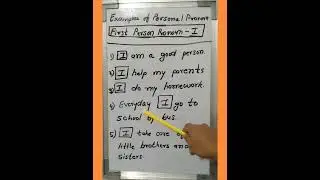 Examples of Personal Pronoun
First Person Pronoun - I
1) I am a good person.
2) I help my parents
3) I do my homework.
4) Everyday I go to
school by bus.
5) I take care of
little brothers and
sisters.